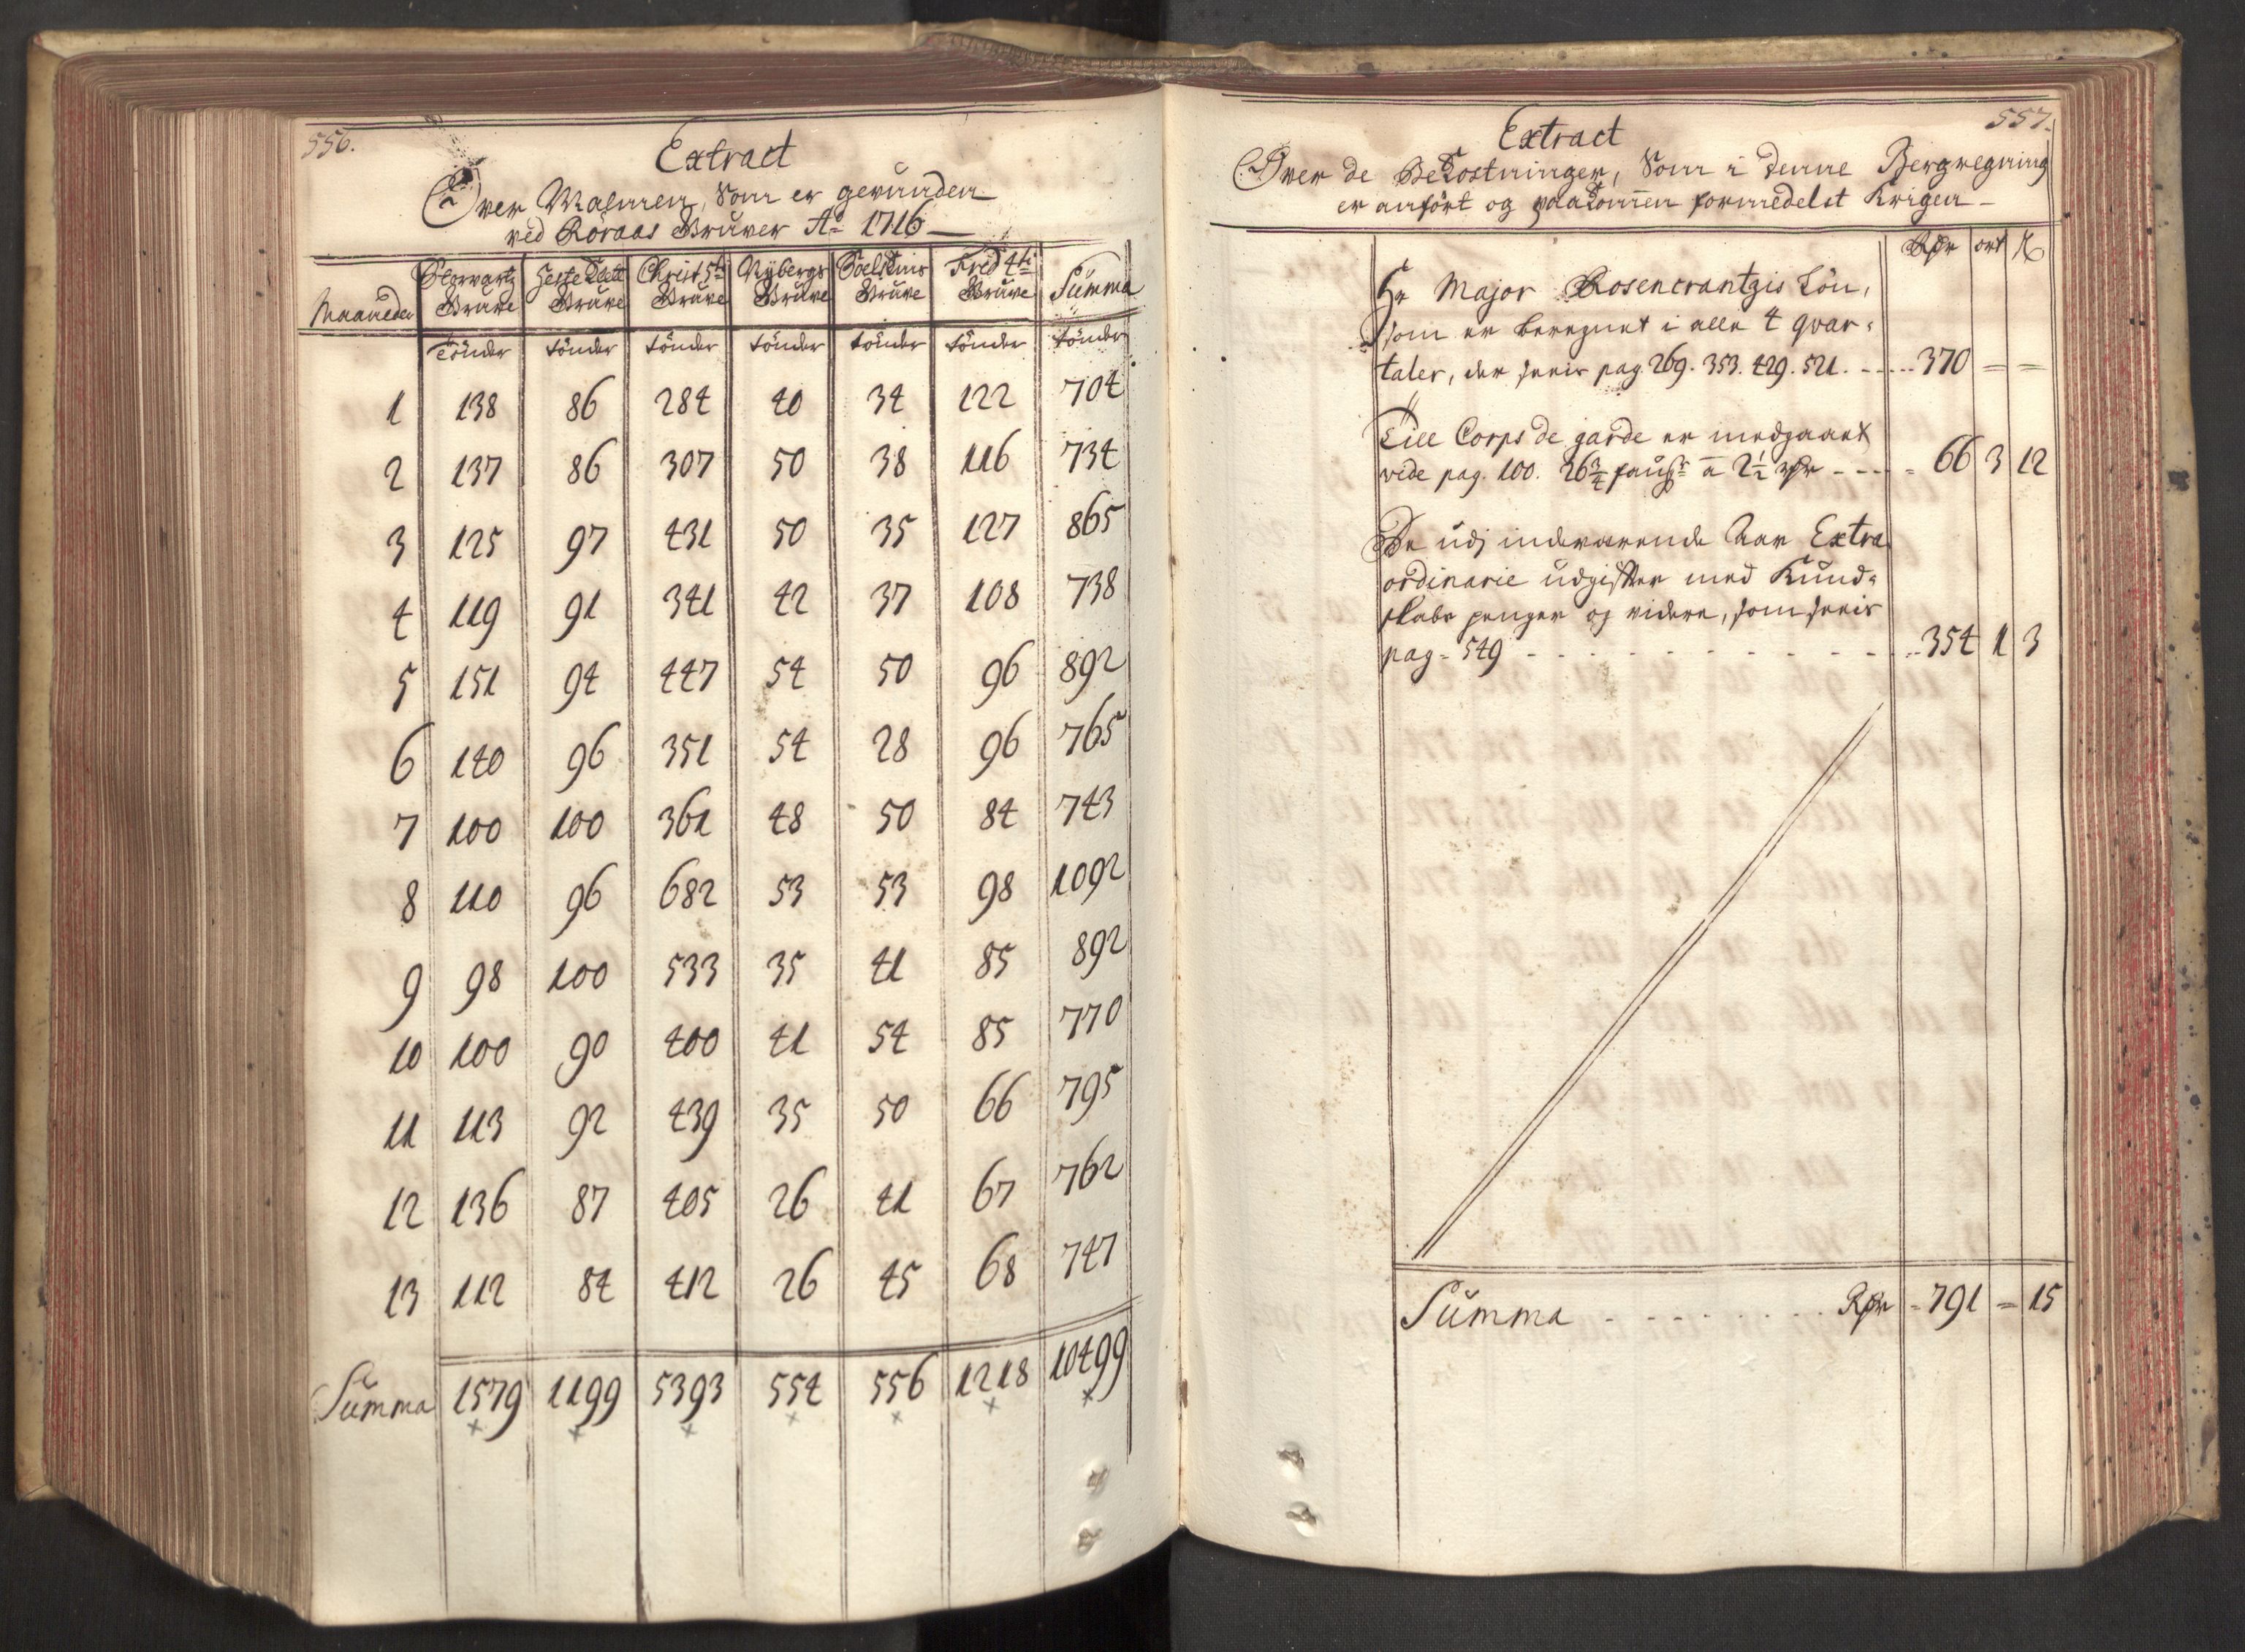 556.
Extract
Over Malmen, Som er gevunden
ved Röraas Gruver Ao 1716
Maaneder Storvartz Gruve Hestekлett Gruve Christ 5ti Gruve Nÿbergs Gruve Solskins Gruve Frid 4ti Gruve Summa
Tönder tönder tönder tönder tönder tönder tönder
1 138 86 284 40 34 122 704
2 137 86 307 50 38 116 734
3 125 97 431 50 35 127 865
4 119 91 341 42 37 108 738
5 151 94 447 54 50 96 892
6 140 96 351 54 28 96 765
7 100 100 361 48 50 84 743
8 110 96 682 53 53 98 1092
9 98 100 533 35 41 85 892
10 100 90 400 41 54 85 770
11 113 92 439 35 50 66 795
12 136 87 405 26 41 67 762
13 112 84 412 26 45 68 747
Summa 1579 1199 5393 554 556 1218 10499
557.
Extract
Over de Bekostninger, Som i denne Bergregning
er anfört og paakommen formedelst Krigen
Rdr ort ß
Hr Major Rosencrantzis Lön,
som er beregnet i alle 4 qvar-
taler, der sees pag. 269. 353. 429. 521. 370 = =
Till Corps de garde er medgaaet
vide pag. 100. 26 3/4 à 2 1/2 rdr 66 3 12
De udj indeværende Aar Extra
ordinarie udgifter med Kund-
skabs penger og videre, som sees
pag. 549 354 1 3
Summa Rdr 791 = 15